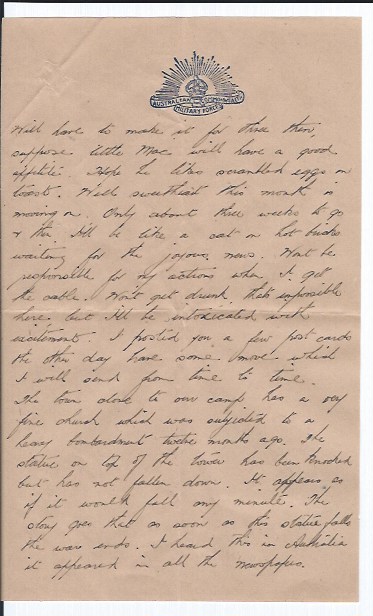 AUSTRALIAN COMMONWEALTH
MILITARY FORCES
Will have to make it for three then,
suppose little Mac will have a good
appetite. Hope he likes scrambled eggs on
toast. Well sweetheart this month is
moving on. Only about three weeks to go
& then I'll be like a cat on hot bricks
waiting for the joyous news. Wont be
responsible for my actions when I get
the cable. Wont get drunk, thats impossible
here but I'll be intoxicated with
excitement. I posted you a few post cards
the other day have some more which
I will send from time to time.
The town close to our camp has a very
fine church which was subjected to a
heavy bombardment twelve months ago. The
statue on top of the tower has been knocked
but has not fallen down. It appears as
if it would fall any minute. The
story goes that as soon as this statue falls
the war ends. I heard this in Australia
it appeared in all the newspapers.